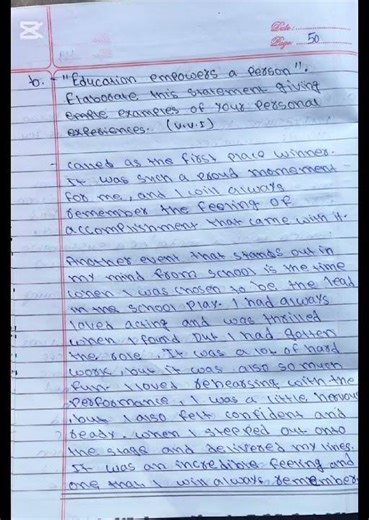 Date:
Page: 50
b. - "Education empowers a person".
Elaborate this statement giving
some examples of your personal
experiences. (V.V.I)
- called as the first place winner.
It was such a proud monement
for me, and I will always
remember the feeling of
accomplishment that came with it.
Another event that stands out in
my mind from school is the time
when I was chosen to be the lead
in the school play. I had always
loved acting and was thrilled
when I found out I had gotten
the role. It was a lot of hard
work, but it was also so much
fun. I loved rehearsing with the
performance, I was a little nervous
, but I also felt confident and
ready. when I stepped out onto
the stage and delivered my lines.
It was an incredible feeling and
one that I will always remember.